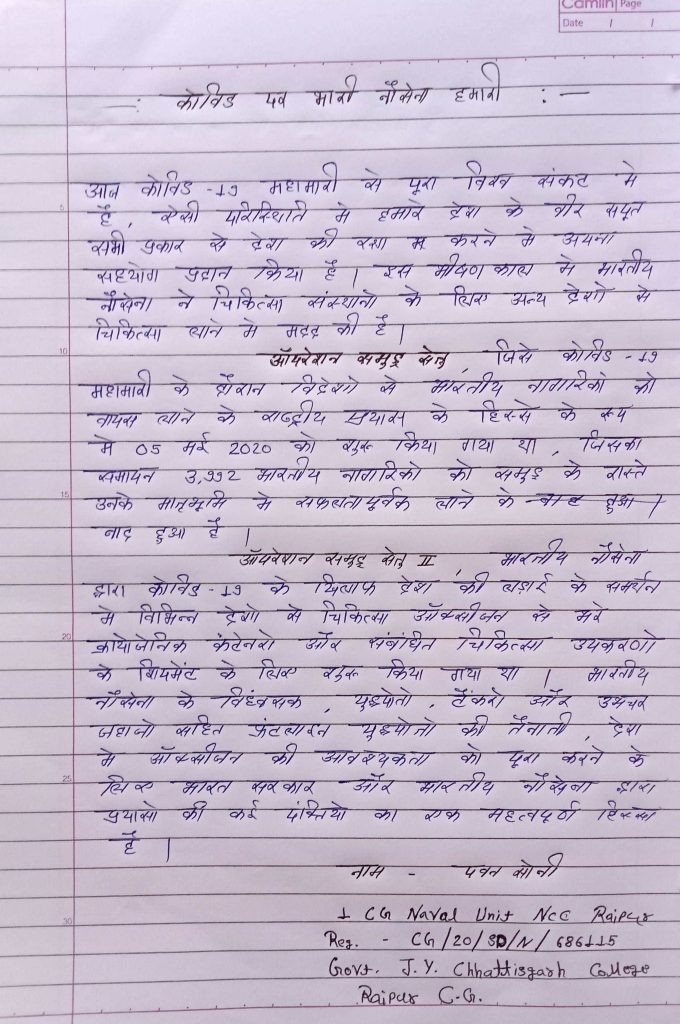 Camlin Page
Date / /
—: कोविड पर भारी नौसेना हमारी :—
आज कोविड -19 महामारी से पूरा विश्व संकट मे
है, ऐसी परिस्थिति मे हमारे देश के वीर सपूत
सभी प्रकार से देश की रक्षा करने मे अपना
सहयोग प्रदान किया है। इस भीषण काल मे भारतीय
नौसेना ने चिकित्सा संस्थानो के लिए अन्य देशो से
चिकित्सा लाने मे मदद की है।
ऑपरेशन समुद्र सेतु, जिसे कोविड -19
महामारी के दौरान विदेशो से भारतीय नागरिको को
वापस लाने के राष्ट्रीय प्रयास के हिस्से के रूप
मे 05 मई 2020 को शुरू किया गया था, जिसका
समापन 3,992 भारतीय नागरिको को समुद्र के रास्ते
उनके मातृभूमि मे सफलतापूर्वक लाने के बाद हुआ।
बाद हुआ है।
ऑपरेशन समुद्र सेतु II, भारतीय नौसेना
द्वारा कोविड -19 के खिलाफ देश की लड़ाई के समर्थन
मे विभिन्न देशो से चिकित्सा ऑक्सीजन से भरे
क्रायोजेनिक कंटेनरो और संबंधित चिकित्सा उपकरणो
के शिपमेंट के लिए शुरू किया गया था। भारतीय
नौसेना के विध्वंसक, युद्धपोतो, टैंकरो और उभयचर
जहाजो सहित फ्रंटलाइन युद्धपोतो की तैनाती, देश
मे ऑक्सीजन की आवश्यकता को पूरा करने के
लिए भारत सरकार और भारतीय नौसेना द्वारा
प्रयासो की कई पंक्तियो का एक महत्वपूर्ण हिस्सा
है।
नाम - पवन सोनी
1 CG Naval Unit NCC Raipur
Reg. - CG/20/SD/N/686115
Govt. J.Y. Chhattisgarh College
Raipur C.G.
5
10
15
20
25
30